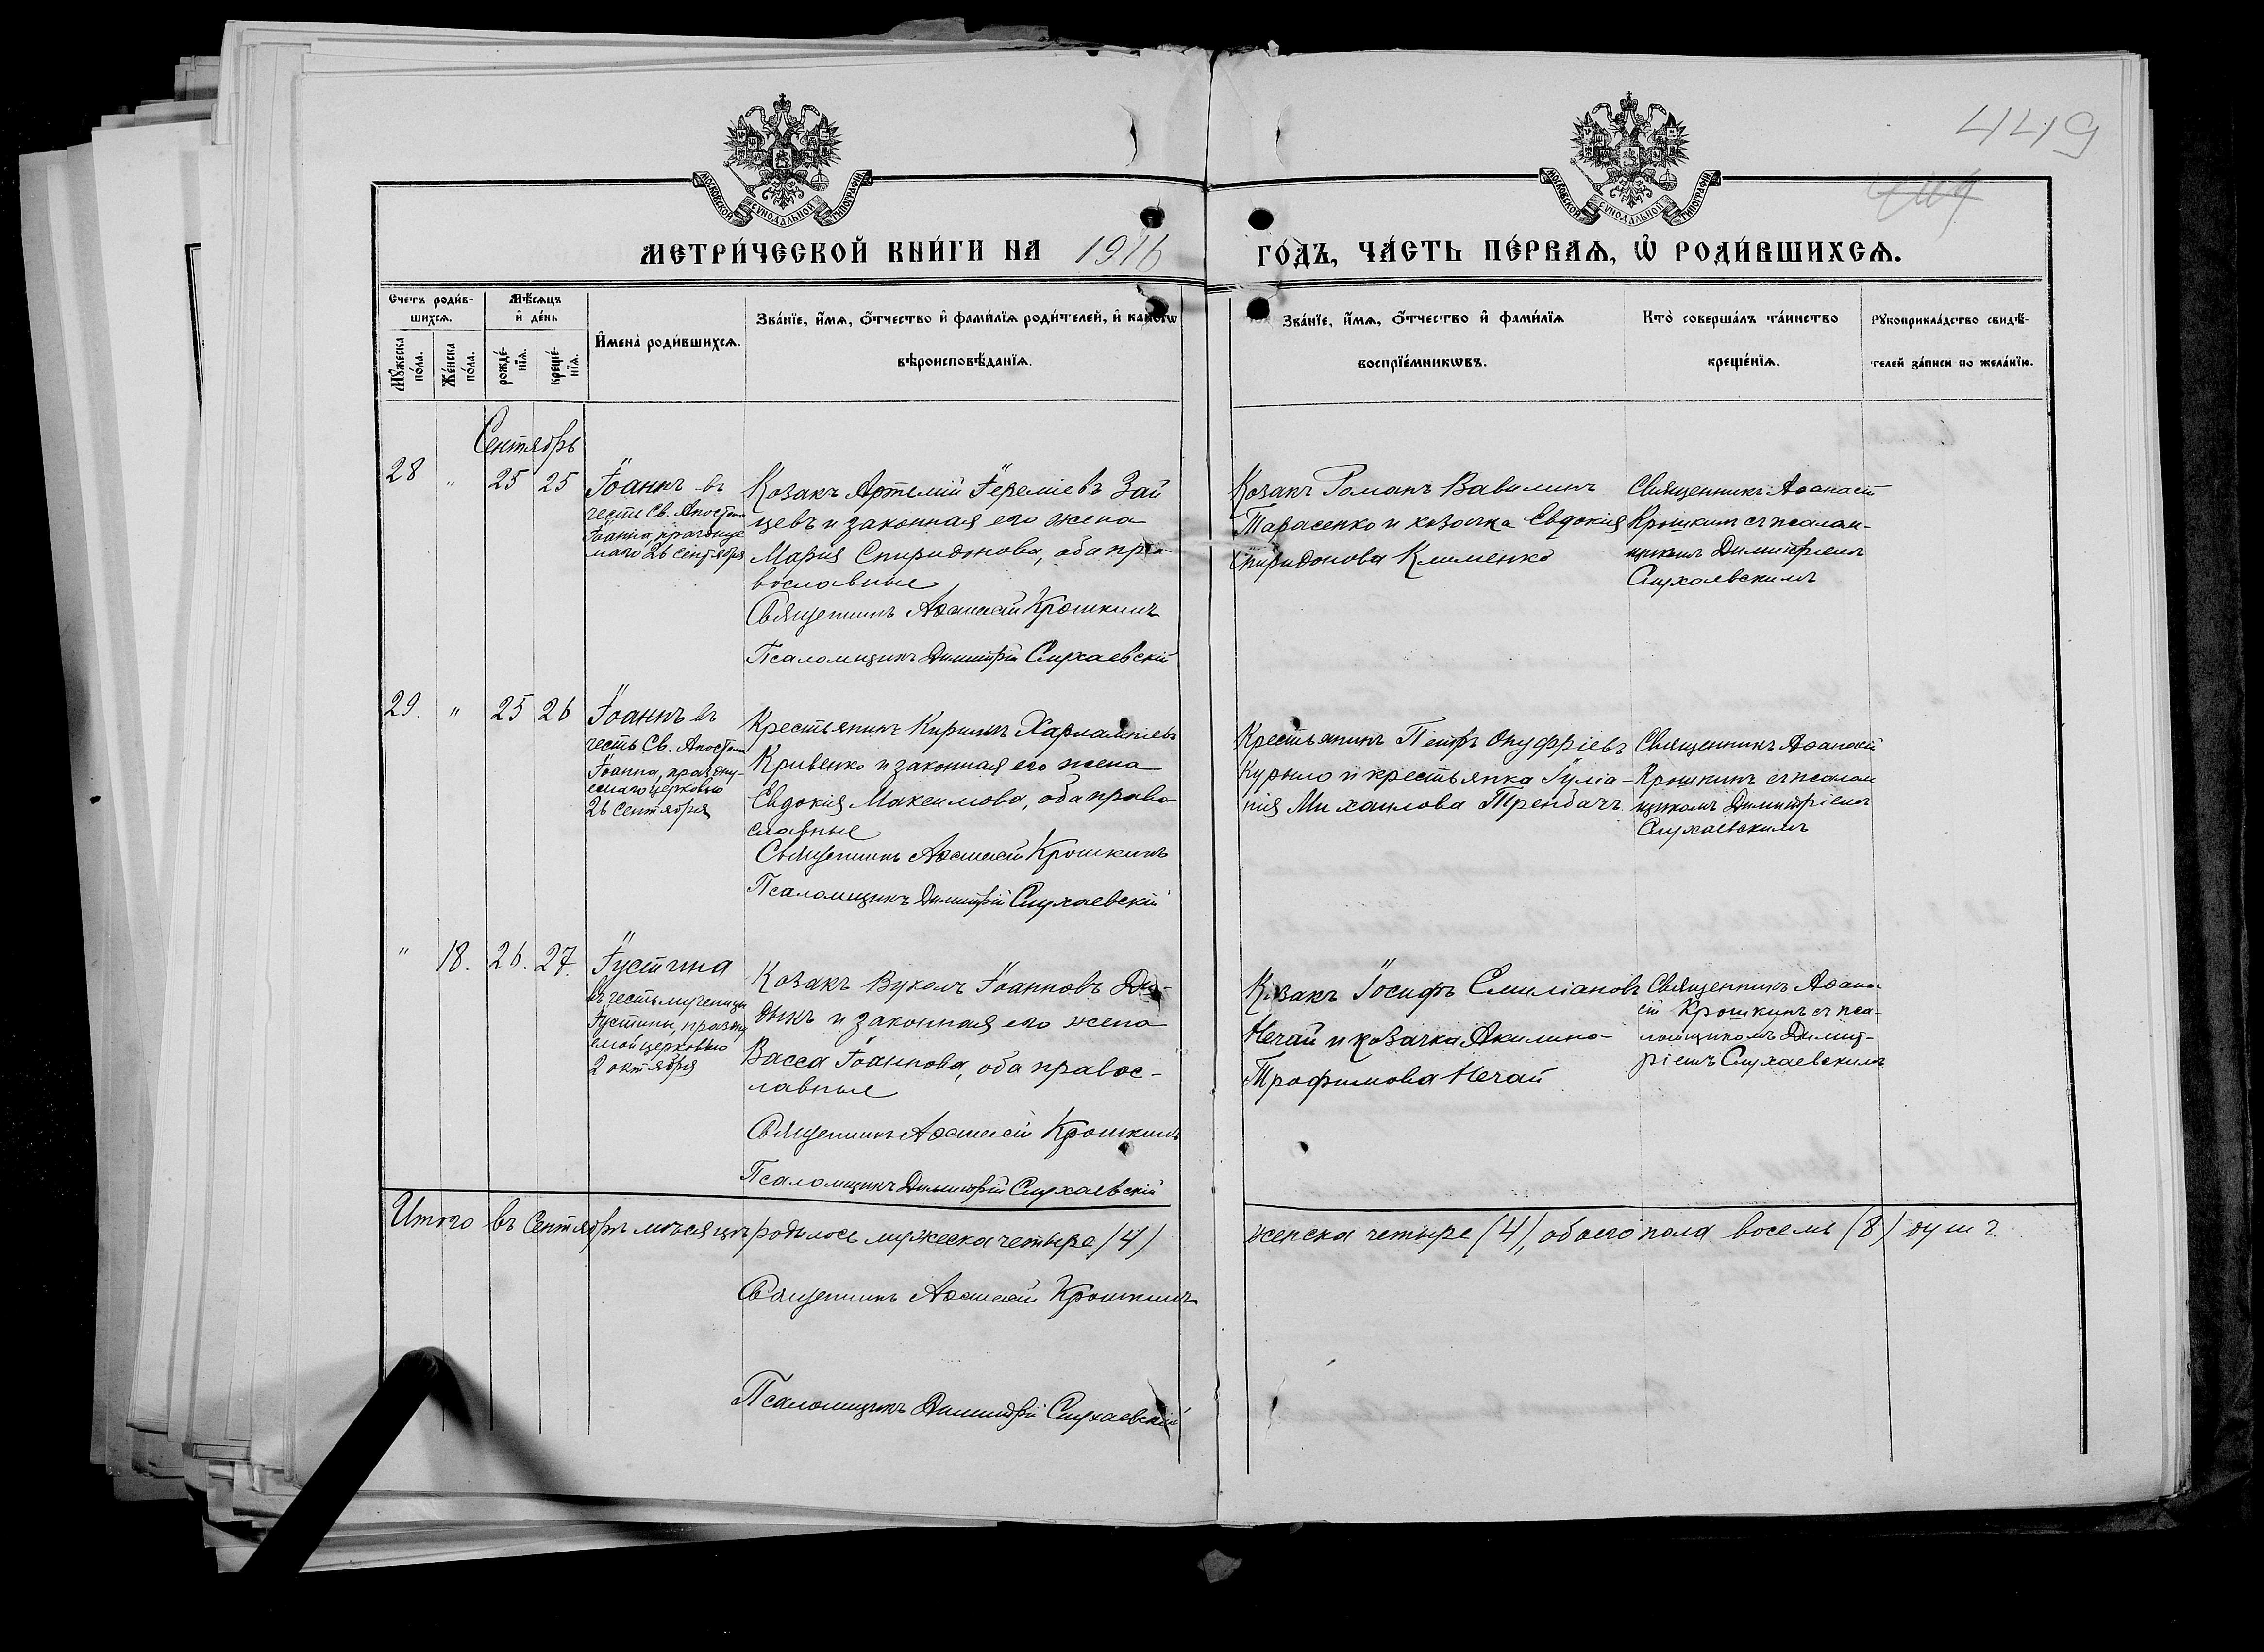 449
МОСКОВСКОЙ СѴНОДАЛЬНОЙ ТИПОГРАФІИ
МОСКОВСКОЙ СѴНОДАЛЬНОЙ ТИПОГРАФІИ
МЕТРИ́ЧЕСКОЙ КНИ́ГИ НА 1916
ГО́ДЪ, ЧА́СТЬ ПЕ́РВАЯ, Ѡ РОДИ́ВШИХСѦ.
Счетъ роди́в-
шихсѧ.
Мꙋ́жеска по́ла.
Же́нска по́ла.
Мѣ́сѧцъ
и҆ де́нь
рожде́-
нїѧ.
креще́-
нїѧ.
И҆мена̀ роди́вшихсѧ.
Зва́нїе, и҆́мѧ, о҆́тчество и҆ фами́лїѧ роди́телей, и҆ какогѡ
вѣроисповѣ́данїѧ.
Зва́нїе, и҆́мѧ, о҆́тчество и҆ фами́лїѧ
воспрїе́мникѡвъ.
Кто̀ соверша́лъ та́инство
креще́нїѧ.
Рꙋкоприкла́дство свидѣ́-
телей за́писи по жела́нїю.
Сентябрь
28 " 25 25
Іоаннъ въ
честь Св. Апостола
Іоанна, празднуе
маго 26 сентября
Козакъ Артемій Іереміевъ Зай
цевъ и законная его жена
Марія Спиридонова, оба пра-
вославные
Священникъ Аѳанасій Крошкинъ
Псаломщикъ Димитрій Слухаевскій
Козакъ Романъ Вавилинъ
Тарасенко и козачка Евдокія
Спиридонова Клименко
Священникъ Аѳанасій
Крошкинъ съ псалом-
щикомъ Димитріемъ
Слухаевскимъ
29. " 25 26
Іоаннъ въ
честь Св. Апостола
Іоанна, праздну-
емаго церковью
26 сентября
Крестьянинъ Кириллъ Харлампіевъ
Кривенко и законная его жена
Евдокія Максимова, оба право
славные
Священникъ Аѳанасій Крошкинъ
Псаломщикъ Димитрій Слухаевскій
Крестьянинъ Петръ Онуфріевъ
Курыло и крестьянка Іуліа-
нія Михаилова Трембачъ
Священникъ Аѳанасій
Крошкинъ съ псалом
щикомъ Димитріемъ
Слухаевскимъ
" 18. 26. 27.
Іустина
въ честь мученицы
Іустины, праздну
емой церковью
2 октября
Козакъ Вуколъ Іоанновъ
дыкъ и законная его жена
Васса Іоаннова, оба правос-
лавные
Священникъ Аѳанасій Крошкинъ
Псаломщикъ Димитрій Слухаевскій
Козакъ Іосифъ Емиліановъ
Нечай и козачка Акилина
Трофимова Нечай
Священникъ Аѳана
сій Крошкинъ съ пса-
ломщикомъ Димит-
ріемъ Слухаевскимъ
Итого въ Сентябрѣ мѣсяцѣ родилось мужеска четыре (4)
женска четыре (4), обоего пола восемь (8) душъ.
Священникъ Аѳанасій Крошкинъ
Псаломщикъ Димитрій Слухаевскій